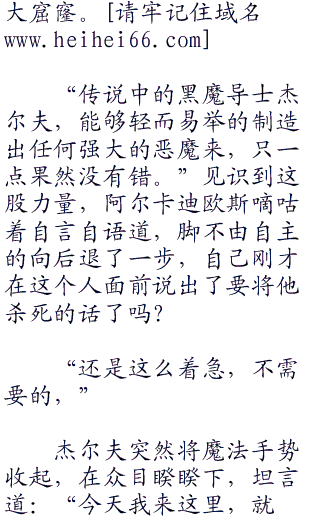 大窟窿。[请牢记住域名
www.heihei66.com]
“传说中的黑魔导士杰
尔夫，能够轻而易举的制造
出任何强大的恶魔来，只一
点果然没有错。”见识到这
股力量，阿尔卡迪欧斯嘀咕
着自言自语道，脚不由自主
的向后退了一步，自己刚才
在这个人面前说出了要将他
杀死的话了吗？
“还是这么着急，不需
要的，”
杰尔夫突然将魔法手势
收起，在众目睽睽下，坦言
道：“今天我来这里，就